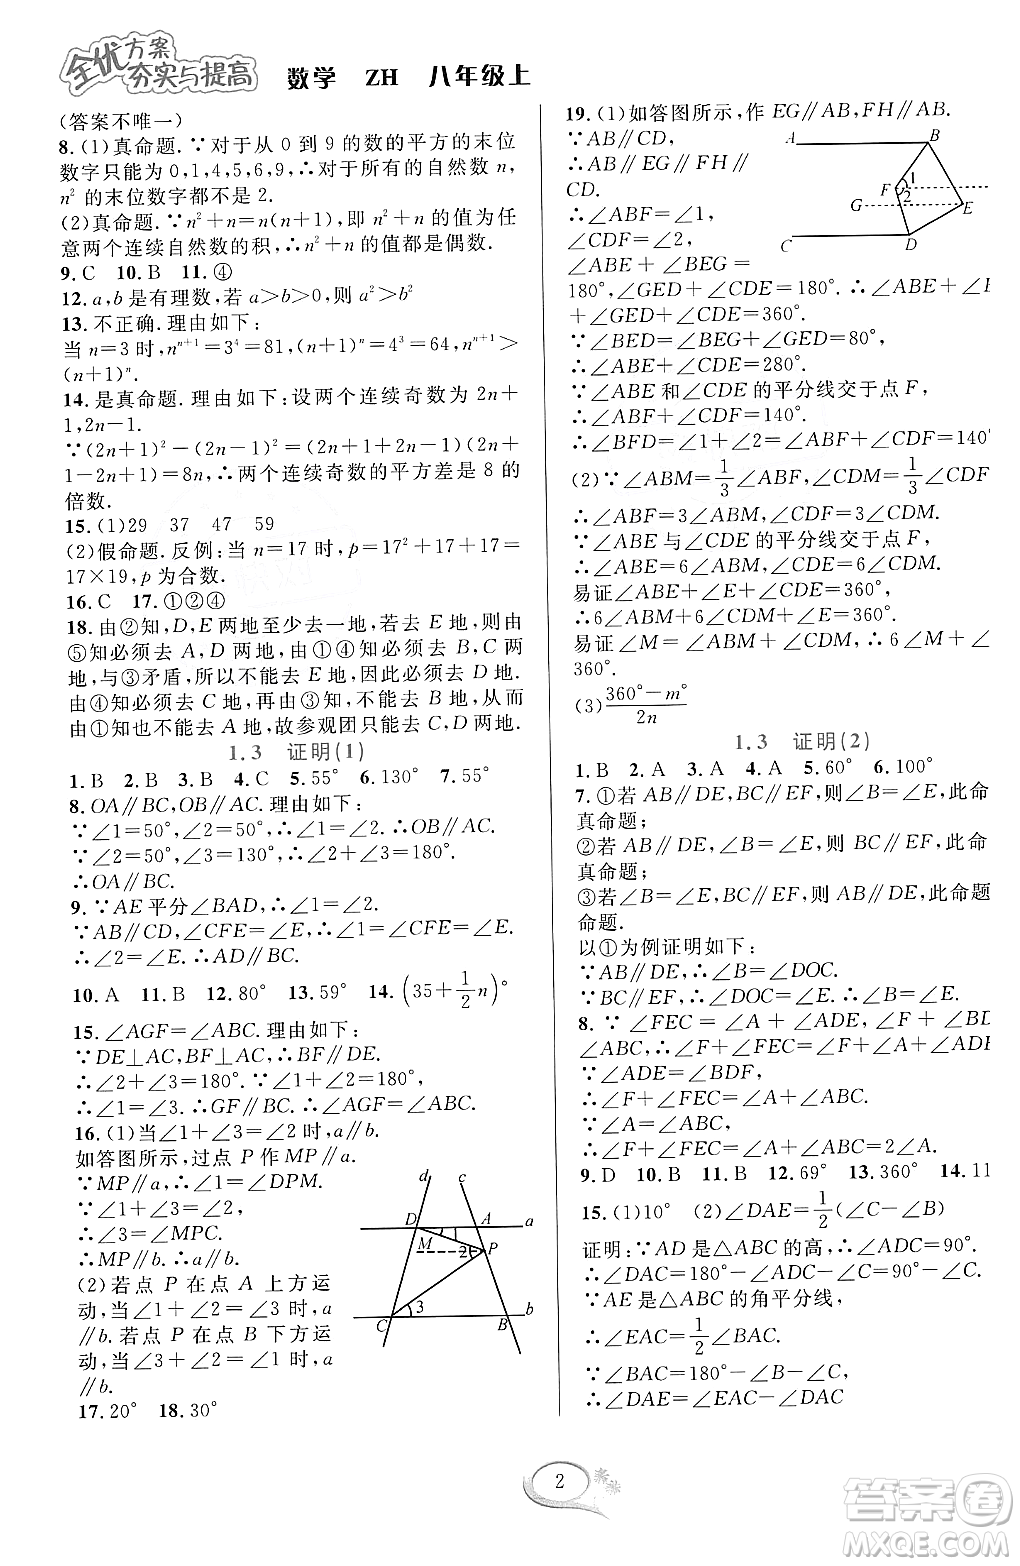 全优方案
夯实与提高
数学 ZH 八年级上
(答案不唯一)
8.(1)真命题.∵对于从 0 到 9 的数的平方的末位
数字只能为 0,1,4,5,6,9,∴对于所有的自然数 n,
n² 的末位数字都不是 2.
(2)真命题.∵n²+n=n(n+1),即 n²+n 的值为任
意两个连续自然数的积,∴n²+n 的值都是偶数.
9.C 10.B 11.④
12.a,b 是有理数,若 a>b>0,则 a²>b²
13.不正确.理由如下:
当 n=3 时,nⁿ⁺¹=3⁴=81,(n+1)ⁿ=4³=64,nⁿ⁺¹>
(n+1)ⁿ.
14.是真命题.理由如下:设两个连续奇数为 2n+
1,2n-1.
∵(2n+1)²-(2n-1)²=(2n+1+2n-1)(2n+
1-2n+1)=8n,∴两个连续奇数的平方差是 8 的
倍数.
15.(1)29 37 47 59
(2)假命题.反例:当 n=17 时,p=17²+17+17=
17×19,p 为合数.
16.C 17.①②④
18.由②知,D,E 两地至少去一地,若去 E 地,则由
⑤知必须去 A,D 两地,由①④知必须去 B,C 两
地,与③矛盾,所以不能去 E 地,因此必须去 D 地.
由④知必须去 C 地,再由③知,不能去 B 地,从而
由①知也不能去 A 地,故参观团只能去 C,D 两地.
1.3 证明(1)
1.B 2.B 3.B 4.C 5.55° 6.130° 7.55°
8.OA∥BC,OB∥AC.理由如下:
∵∠1=50°,∠2=50°,∴∠1=∠2.∴OB∥AC.
∵∠2=50°,∠3=130°,∴∠2+∠3=180°.
∴OA∥BC.
9.∵AE平分∠BAD,∴∠1=∠2.
∵AB∥CD,∠CFE=∠E,∴∠1=∠CFE=∠E.
∴∠2=∠E.∴AD∥BC.
10.A 11.B 12.80° 13.59° 14.(35+1/2n)°
15.∠AGF=∠ABC.理由如下:
∵DE⊥AC,BF⊥AC,∴BF∥DE.
∴∠2+∠3=180°.∵∠1+∠2=180°,
∴∠1=∠3.∴GF∥BC.∴∠AGF=∠ABC.
16.(1)当∠1+∠3=∠2时,a∥b.
如答图所示,过点 P 作 MP∥a.
∵MP∥a,∴∠1=∠DPM.
∵∠1+∠3=∠2,
∴∠3=∠MPC.
∴MP∥b.∴a∥b.
(2)若点 P 在点 A 上方运
动,当∠1+∠2=∠3时,a
∥b.若点 P 在点 B 下方运
动,当∠3+∠2=∠1时,
a∥b.
d c
D A a
M P
2
1
3
C B b
17.20° 18.30°
19.(1)如答图所示,作 EG∥AB,FH∥AB.
∵AB∥CD,
∴AB∥EG∥FH∥
CD.
∴∠ABF=∠1,
∠CDF=∠2,
∠ABE+∠BEG=
A B
F 1
2
G E
C D
180°,∠GED+∠CDE=180°.∴∠ABE+∠
+∠GED+∠CDE=360°.
∵∠BED=∠BEG+∠GED=80°,
∴∠ABE+∠CDE=280°.
∵∠ABE 和∠CDE的平分线交于点 F,
∴∠ABF+∠CDF=140°.
∴∠BFD=∠1+∠2=∠ABF+∠CDF=140°
(2)∵∠ABM=1/3∠ABF,∠CDM=1/3∠CDF
∴∠ABF=3∠ABM,∠CDF=3∠CDM.
∵∠ABE与∠CDE的平分线交于点 F,
∴∠ABE=6∠ABM,∠CDE=6∠CDM.
易证∠ABE+∠E+∠CDE=360°,
∴6∠ABM+6∠CDM+∠E=360°.
易证∠M=∠ABM+∠CDM,∴6∠M+∠
360°.
(3)(360°-m°)/2n
1.3 证明(2)
1.B 2.A 3.A 4.A 5.60° 6.100°
7.①若 AB∥DE,BC∥EF,则∠B=∠E,此命
真命题;
②若 AB∥DE,∠B=∠E,则 BC∥EF,此命
真命题;
③若∠B=∠E,BC∥EF,则 AB∥DE,此命题
命题.
以①为例证明如下:
∵AB∥DE,∴∠B=∠DOC.
∵BC∥EF,∴∠DOC=∠E.∴∠B=∠E.
8.∵∠FEC=∠A+∠ADE,∠F+∠
∠ABC,∴∠F+∠FEC=∠F+∠A+∠ADE
∵∠ADE=∠BDF,
∴∠F+∠FEC=∠A+∠ABC.
∵∠A=∠ABC,
∴∠F+∠FEC=∠A+∠ABC=2∠A.
9.D 10.B 11.B 12.69° 13.360° 14.11
15.(1)10° (2)∠DAE=1/2(∠C-∠B)
证明:∵AD是△ABC的高,∴∠ADC=90°.
∴∠DAC=180°-∠ADC-∠C=90°-∠C.
∵AE是△ABC的角平分线,
∴∠EAC=1/2∠BAC.
∵∠BAC=180°-∠B-∠C,
∴∠DAE=∠EAC-∠DAC
2
答案卷
MXQE.COM